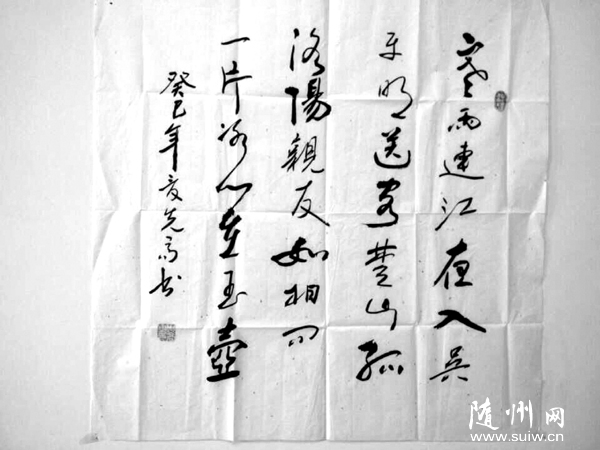 寒雨連江夜入吴
平明送客楚山孤
洛陽親友如相问
一片冰心在玉壺
癸巳年 先 书
随州网
www.suiw.cn